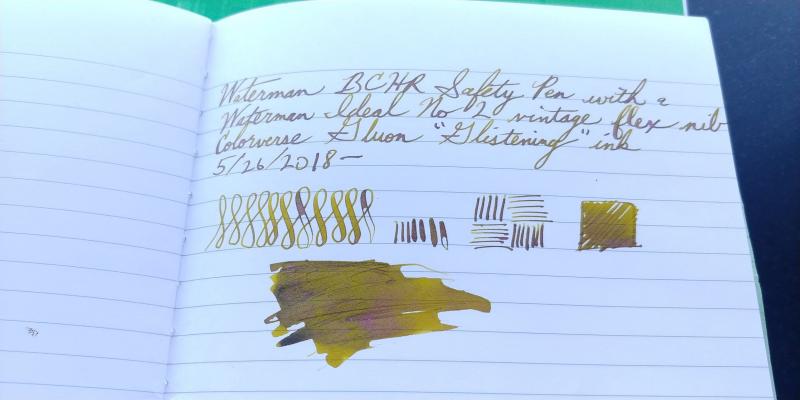 Waterman BCHR Safety Pen with a
Waterman Ideal No 2 vintage flex nib
Colorverse Gluon "Glistening" ink
5/26/2018—